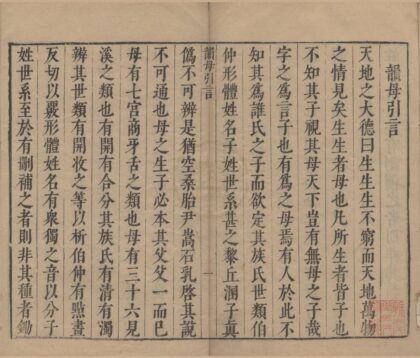 韻母引言
天地之大德曰生生生不窮而天地萬物
之情見矣生生者母也凡所生者皆子也
不知其子視其母天下豈有無母之子哉
字之為言子也有為之母焉有人於此不
知其為誰氏之子而欲定其族氏世類伯
仲形體姓名子姓世系甚之黎丘溷子真
韻母引言
一
偽不可辨是猶空桑胎尹嵩石乳啓其說
不可通也母之生子必本其父父一而已
母有七宮商牙舌之類也母有三十六見
溪之類也有開有合分其族氏有清有濁
辨其世類有開收之等以析伯仲有㸃畫
反切以嚴形體姓名有衆獨之音以分子
姓世系至於有刪補之者則非其種者鋤